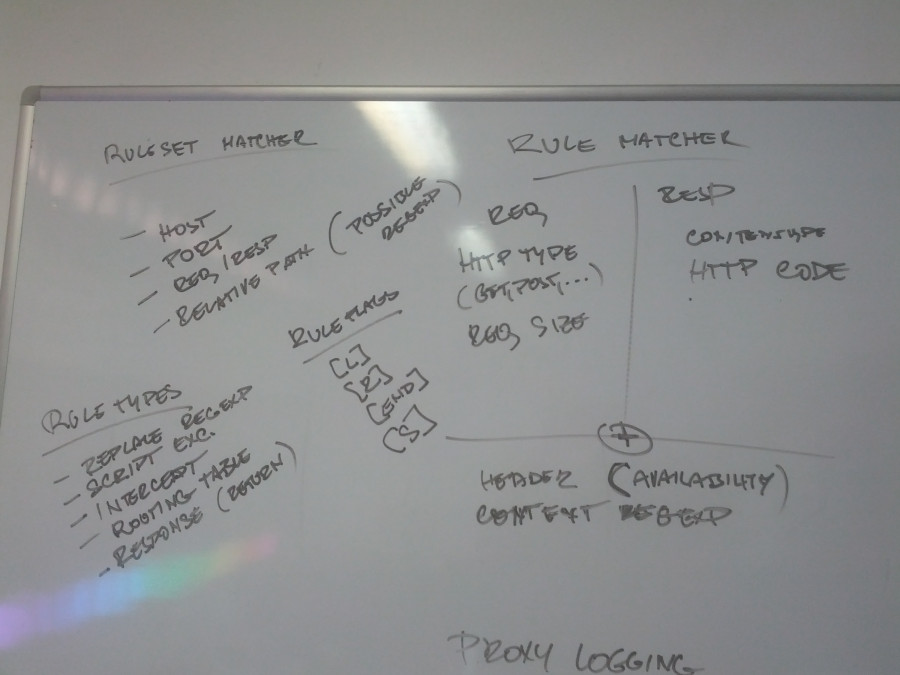 RULESET MATCHER
- HOST
- PORT
- REQ/RESP
- RELATIVE PATH (POSSIBLE REGEXP)
RULE FLAGS
[L]
[R]
[END]
[S]
RULE TYPES
- REPLACE REGEXP
- SCRIPT EXC.
- INTERCEPT
- ROUTING TABLE
- RESPONSE (RETURN)
RULE MATCHER
REQ
HTTP TYPE
(GET, POST, ...)
REQ SIZE
RESP
CONTENTYPE
HTTP CODE
+
HEADER (AVAILABILITY)
CONTEXT REGEXP
PROXY LOGGING